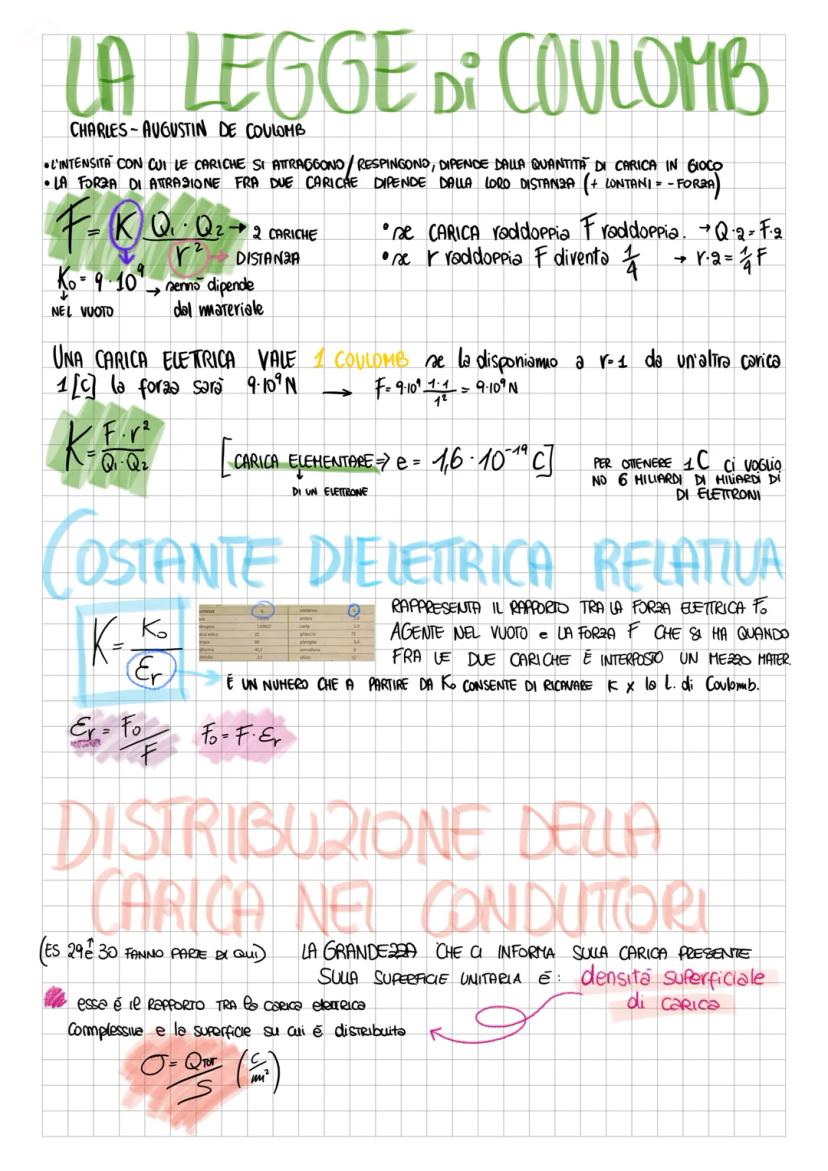 LA LEGGE di COULOMB
CHARLES-AUGUSTIN DE COULOMB
• L'INTENSITÀ CON CUI LE CARICHE SI ATTRAGGONO/RESPINGONO, DIPENDE DALLA QUANTITÀ DI CARICA IN GIOCO
• LA FORZA DI ATTRAZIONE FRA DUE CARICHE DIPENDE DALLA LORO DISTANZA (+ LONTANI = - FORZA)
F = K Q₁ · Q₂ / r² → 2 CARICHE
→ DISTANZA
• se CARICA raddoppia F raddoppia. → Q·2 = F·2
• se r raddoppia F diventa 1/4 → r·2 = 1/4 F
K₀ = 9·10⁹ → sennò dipende
NEL VUOTO dal materiale
UNA CARICA ELETRICA VALE 1 COULOMB se la disponiamo a r=1 da un'altra carica
1[C] la forza sarà 9·10⁹N → F= 9·10⁹ 1·1/1² = 9·10⁹N
K = F·r² / Q₁·Q₂
[CARICA ELEMENTARE ⇒ e = 1,6 · 10⁻¹⁹ C]
DI UN ELETTRONE
PER OTTENERE 1C CI VOGLIO
NO 6 MILIARDI DI MILIARDI DI
DI ELETTRONI
COSTANTE DIELETTRICA RELATIVA
K = K₀ / Ɛr
RAPPRESENTA IL RAPPORTO TRA LA FORZA ELETTRICA F₀
AGENTE NEL VUOTO e LA FORZA F CHE SI HA QUANDO
FRA LE DUE CARICHE È INTERPOSTO UN MEZZO MATER.
É UN NUMERO CHE A PARTIRE DA K₀ CONSENTE DI RICAVARE K x la L. di Coulomb.
Ɛr = F₀ / F
F₀ = F·Ɛr
DISTRIBUZIONE DELLA
CARICA NEI CONDUTTORI
(ES 29 e 30 FANNO PARTE DI QUI)
LA GRANDEZZA CHE CI INFORMA SULLA CARICA PRESENTE
SULLA SUPERFICIE UNITARIA É: densità superficiale
di carica
essa é il RAPPORTO TRA la carica elettrica
complessiva e la superficie su cui é distribuita
σ = QTOT / S (C/m²)